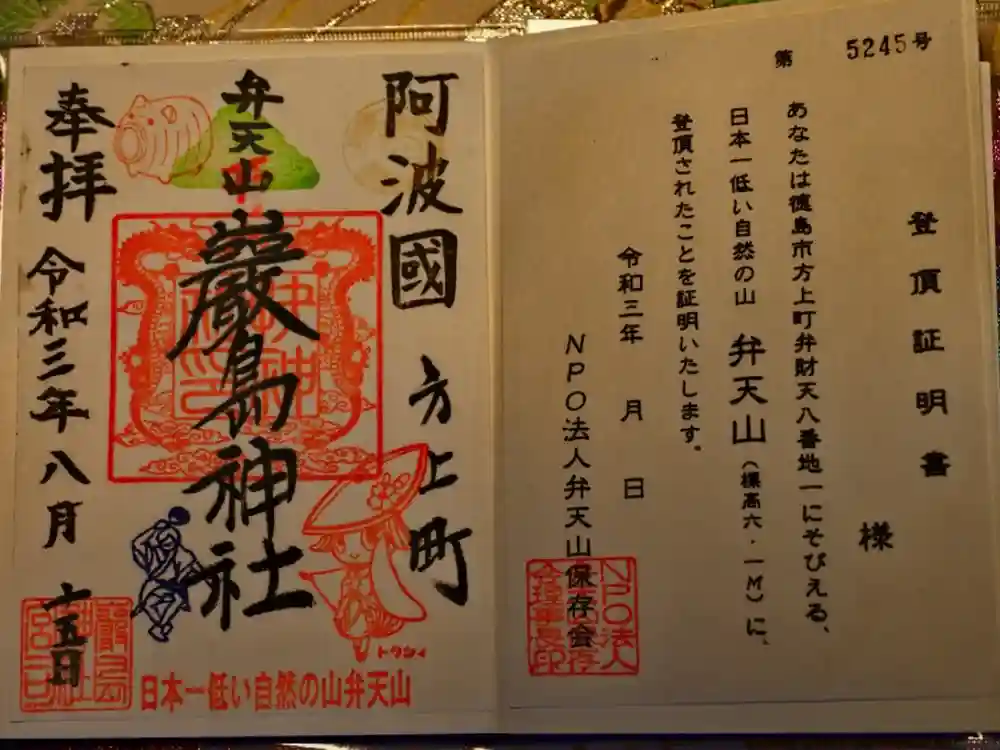 第 5245号
登頂証明書
様
あなたは徳島市方上町弁財天八番地一にそびえる、
日本一低い自然の山 弁天山(標高六・一M)に、
登頂されたことを証明いたします。
令和三年 月 日
NPO法人弁天山保存会
阿波國 方上町
弁天山
巖島神社
奉拝 令和三年八月 十五日
トクシィ
日本一低い自然の山弁天山